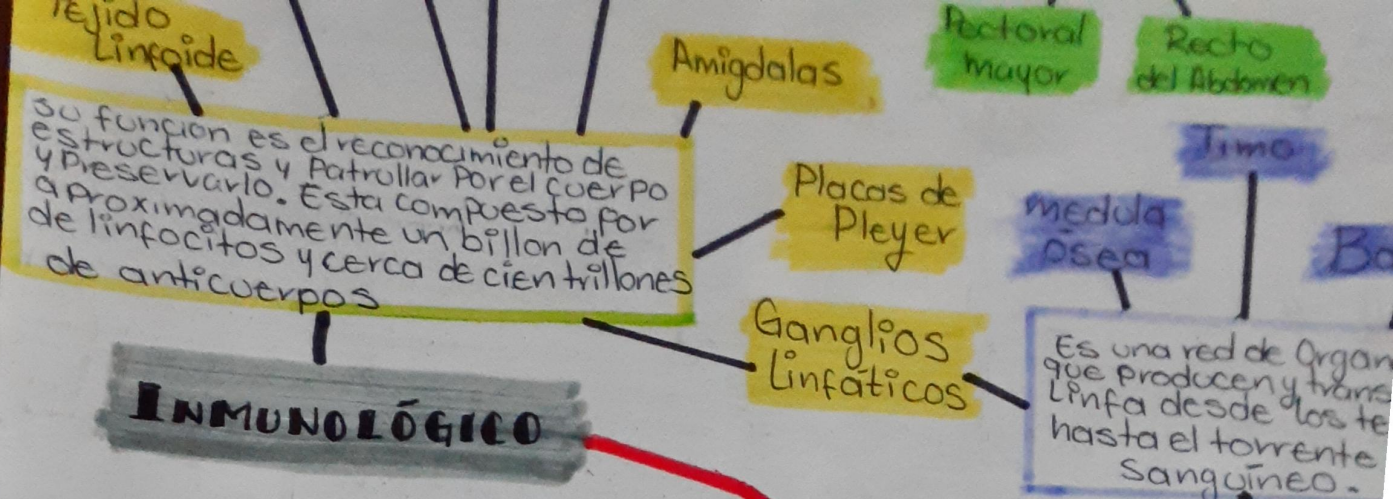 Tejido
Linfoide
Amigdalas
Pectoral
mayor
Recto
del Abdomen
su funcion es el reconocimiento de
estructuras y Patrullar por el cuerpo
y Preservarlo. Esta compuesto por
aproximadamente un billon de
de linfocitos y cerca de cien trillones
de anticuerpos
Placas de
Pleyer
Timo
medula
Osea
Ba
Ganglios
Linfáticos
INMUNOLÓGICO
Es una red de Organ
que producen y trans
Linfa desde los te
hasta el torrente
Sanguíneo.